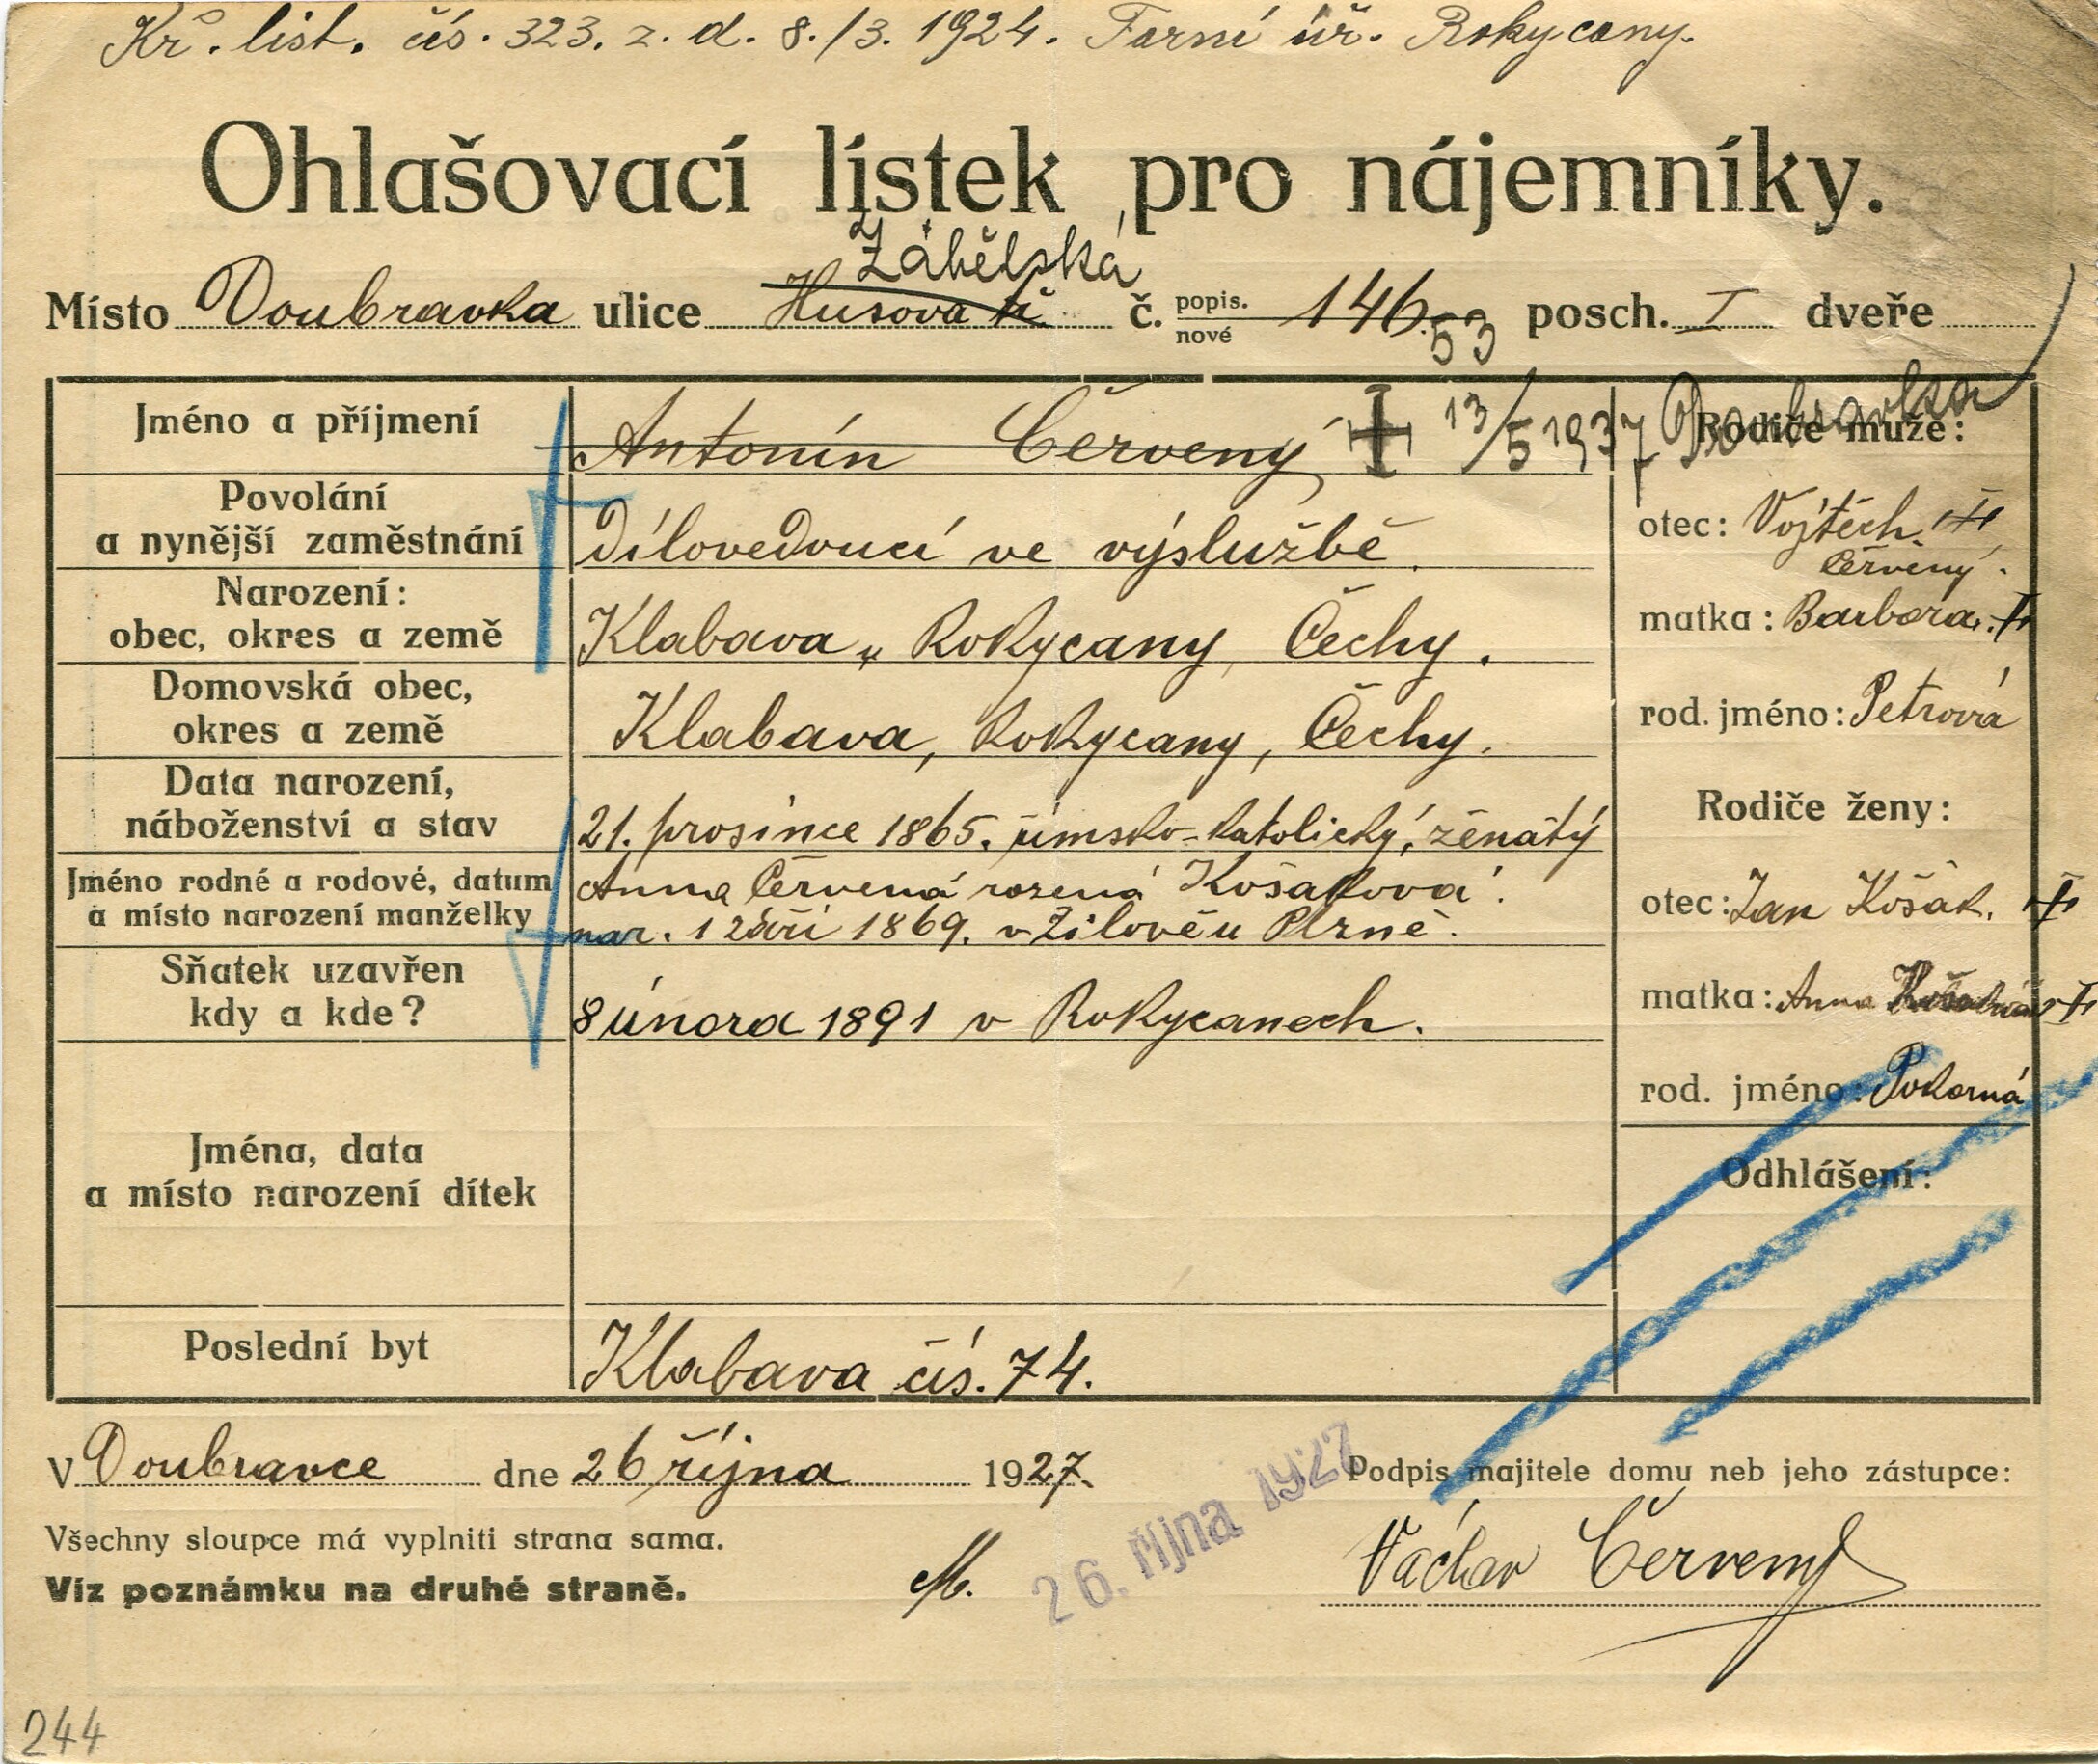 Kř. list. čís. 323. z. d. 8./3. 1924. Farní úř. Rokycany.
Ohlašovací lístek pro nájemníky.
Zábělská
Místo Doubravka ulice Husova tř. č. popis. nové 146 53 posch. I dveře
Jméno a příjmení Antonín Červený 13/5 1937 Doubravka
Povolání
a nynější zaměstnání Dílovedoucí ve výslužbě.
Narození:
obec, okres a země Klabava, Rokycany, Čechy.
Domovská obec,
okres a země Klabava, Rokycany, Čechy.
Data narození,
náboženství a stav 21. prosince 1865. římsko-katolický, ženatý
Jméno rodné a rodové, datum Anna Červená rozená Košaková.
a místo narození manželky nar. 1 září 1869. v Žilově u Plzně.
Sňatek uzavřen
kdy a kde? 8 února 1891 v Rokycanech.
Jména, data
a místo narození dítek
Poslední byt Klabava čís. 74.
Rodiče muže:
otec: Vojtěch
Červený.
matka: Barbora
rod. jméno: Petrová
Rodiče ženy:
otec: Jan Košák.
matka: Anna
rod. jméno: Pokorná
Odhlášení:
V Doubravce dne 26 října 1927.
26. října 1927
Podpis majitele domu neb jeho zástupce:
Václav Červený
Všechny sloupce má vyplniti strana sama.
Viz poznámku na druhé straně.
M.
244